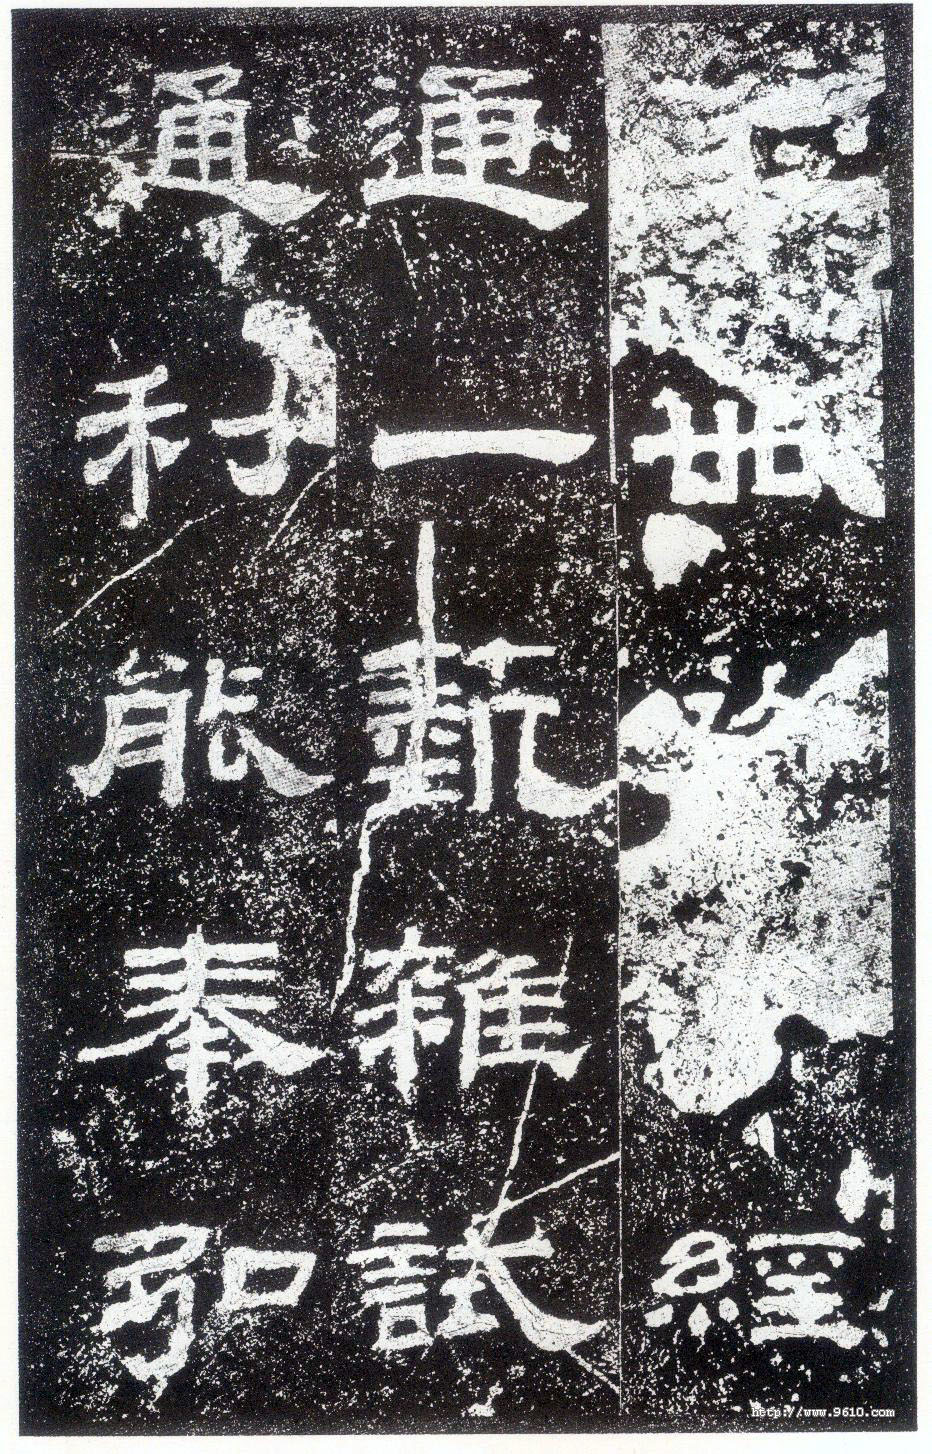 卌經
通一埶雜試
通利能奉弘
http://www.9610.com